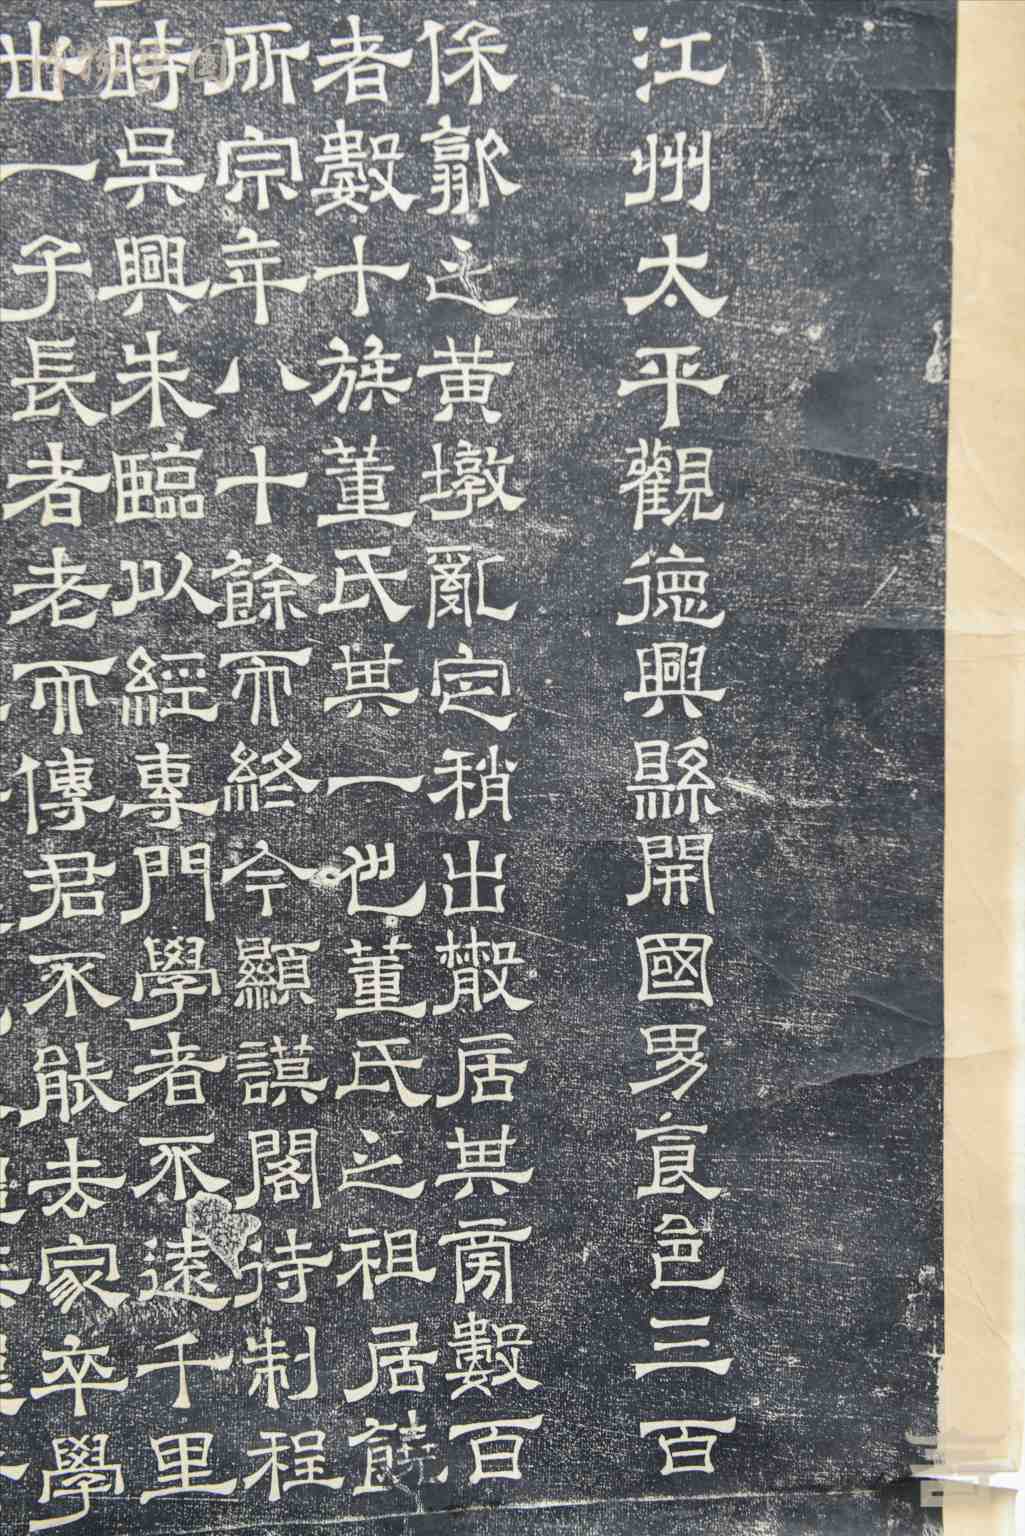 江州太平觀德興縣開國男食邑三百
保歙之黃墩亂定稍出散居其旁數百
者數十族董氏其一也董氏之祖居饒
所宗年八十餘而終今顯謨閣待制程
時吳興朱臨以經專門學者不遠千里
一子長者老而傳君不能去家卒學